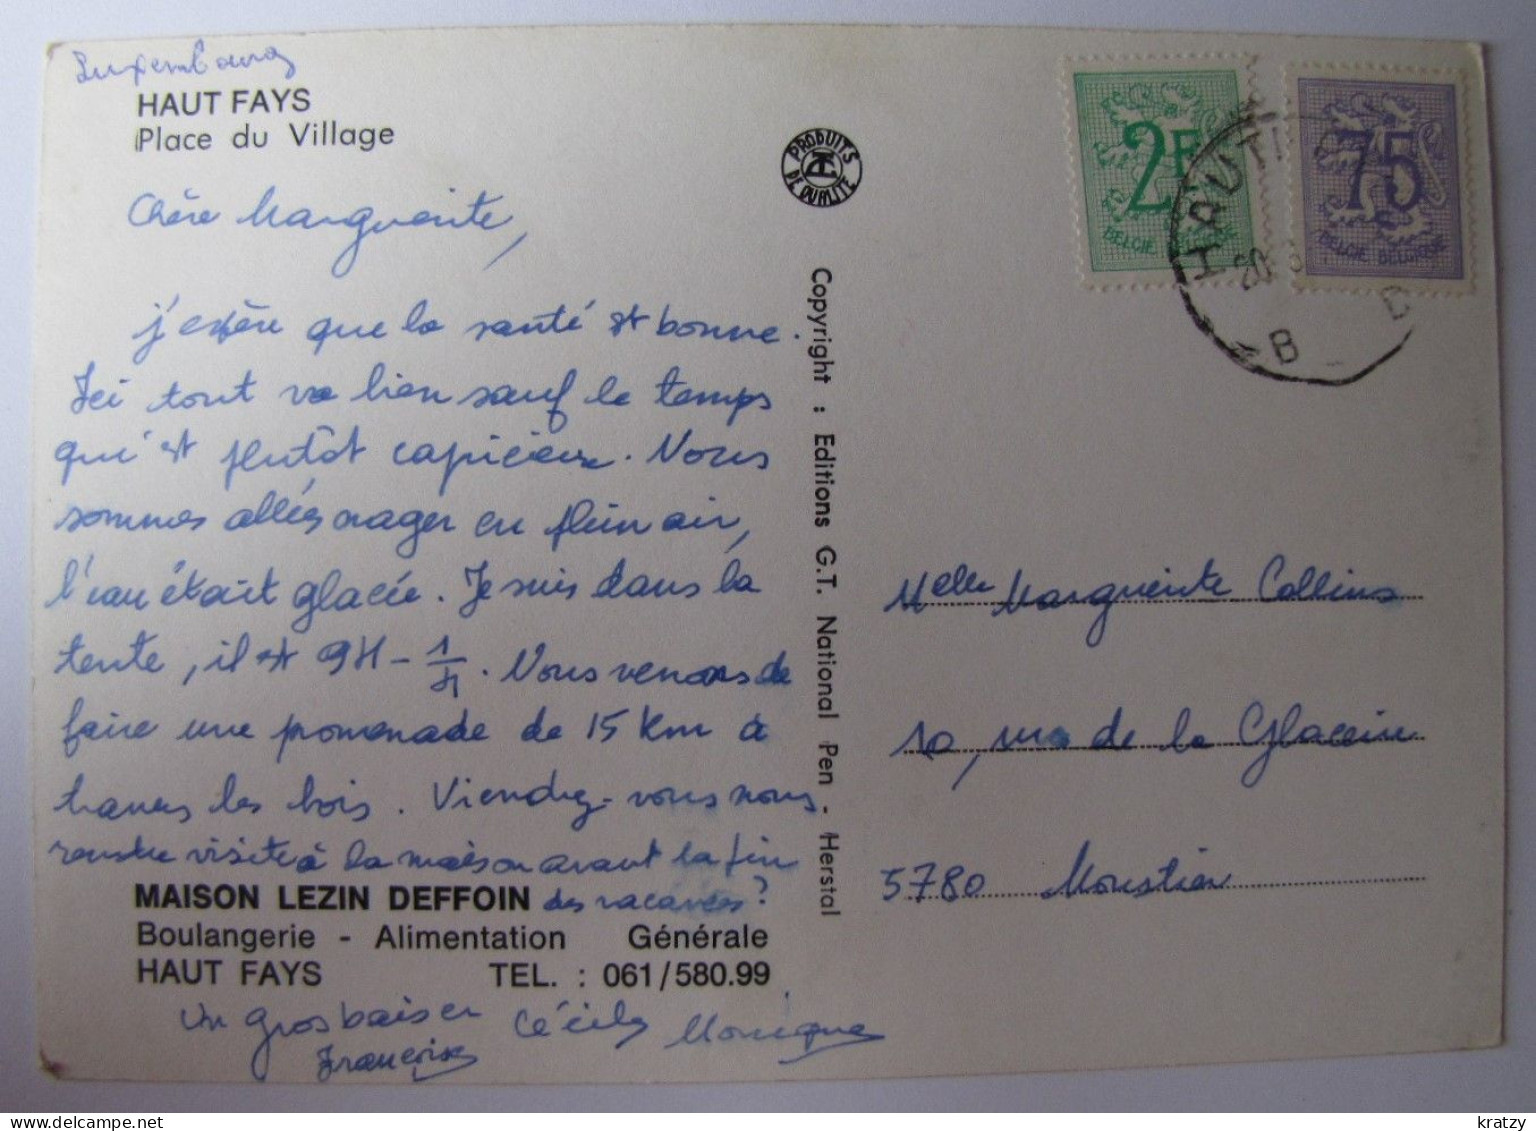 Luxembourg
HAUT FAYS
Place du Village
Chère Marguerite,
j'espère que la santé est bonne.
Ici tout va bien sauf le temps
qui est plutôt capricieux. Nous
sommes allées nager en plein air,
l'eau était glacée. Je suis dans la
tente, il est 9H - 1/4. Nous venons de
faire une promenade de 15 km à
travers les bois. Viendrez-vous nous
rendre visite à la maison avant la fin
des vacances?
MAISON LEZIN DEFFOIN
Boulangerie - Alimentation Générale
HAUT FAYS TEL. : 061/580.99
Un gros baiser Cécile Monique
Françoise
PRODUITS
DE QUALITE
Copyright : Editions G.T. National Pen - Herstal
2F
BELGIE BELGIQUE
75
BELGIE BELGIQUE
HAUT
20
B
Melle Marguerite Collins
10, rue de la Glacerie
5780 Moustier
kratzy